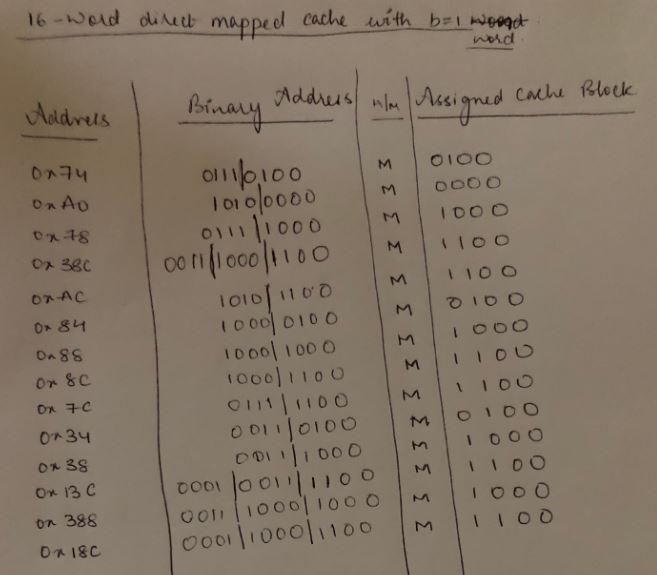 16-word direct mapped cache with b=1 word
Address Binary Address H/M Assigned Cache Block
0x74 0111|0100 M 0100
0xA0 1010|0000 M 0000
0x78 0111|1000 M 1000
0x38C 0011|1000|1100 M 1100
0xAC 1010|1100 M 1100
0x84 1000|0100 M 0100
0x88 1000|1000 M 1000
0x8C 1000|1100 M 1100
0x7C 0111|1100 M 1100
0x34 0011|0100 M 0100
0x38 0011|1000 M 1000
0x13C 0001|0011|1100 M 1100
0x388 0011|1000|1000 M 1000
0x18C 0001|1000|1100 M 1100